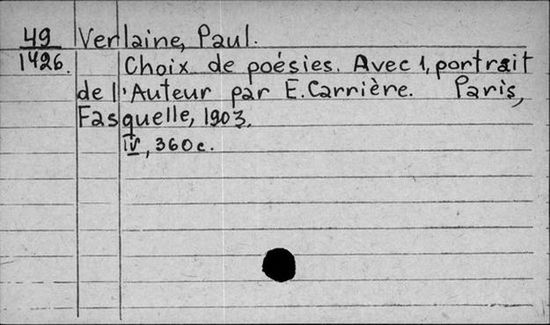 49 Verlaine, Paul.
1426. Choix de poésies. Avec 1, portrait
de l'Auteur par E. Carrière. Paris,
Fasquelle, 1903.
IV, 360 c.